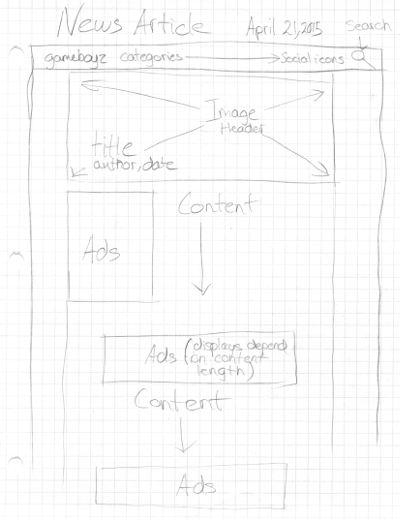 News Article April 21, 2015 Search
gameboyz categories Social icons
Image
Header
title
author, date
Content
Ads
Ads (displays depend
on content
length)
Content
Ads